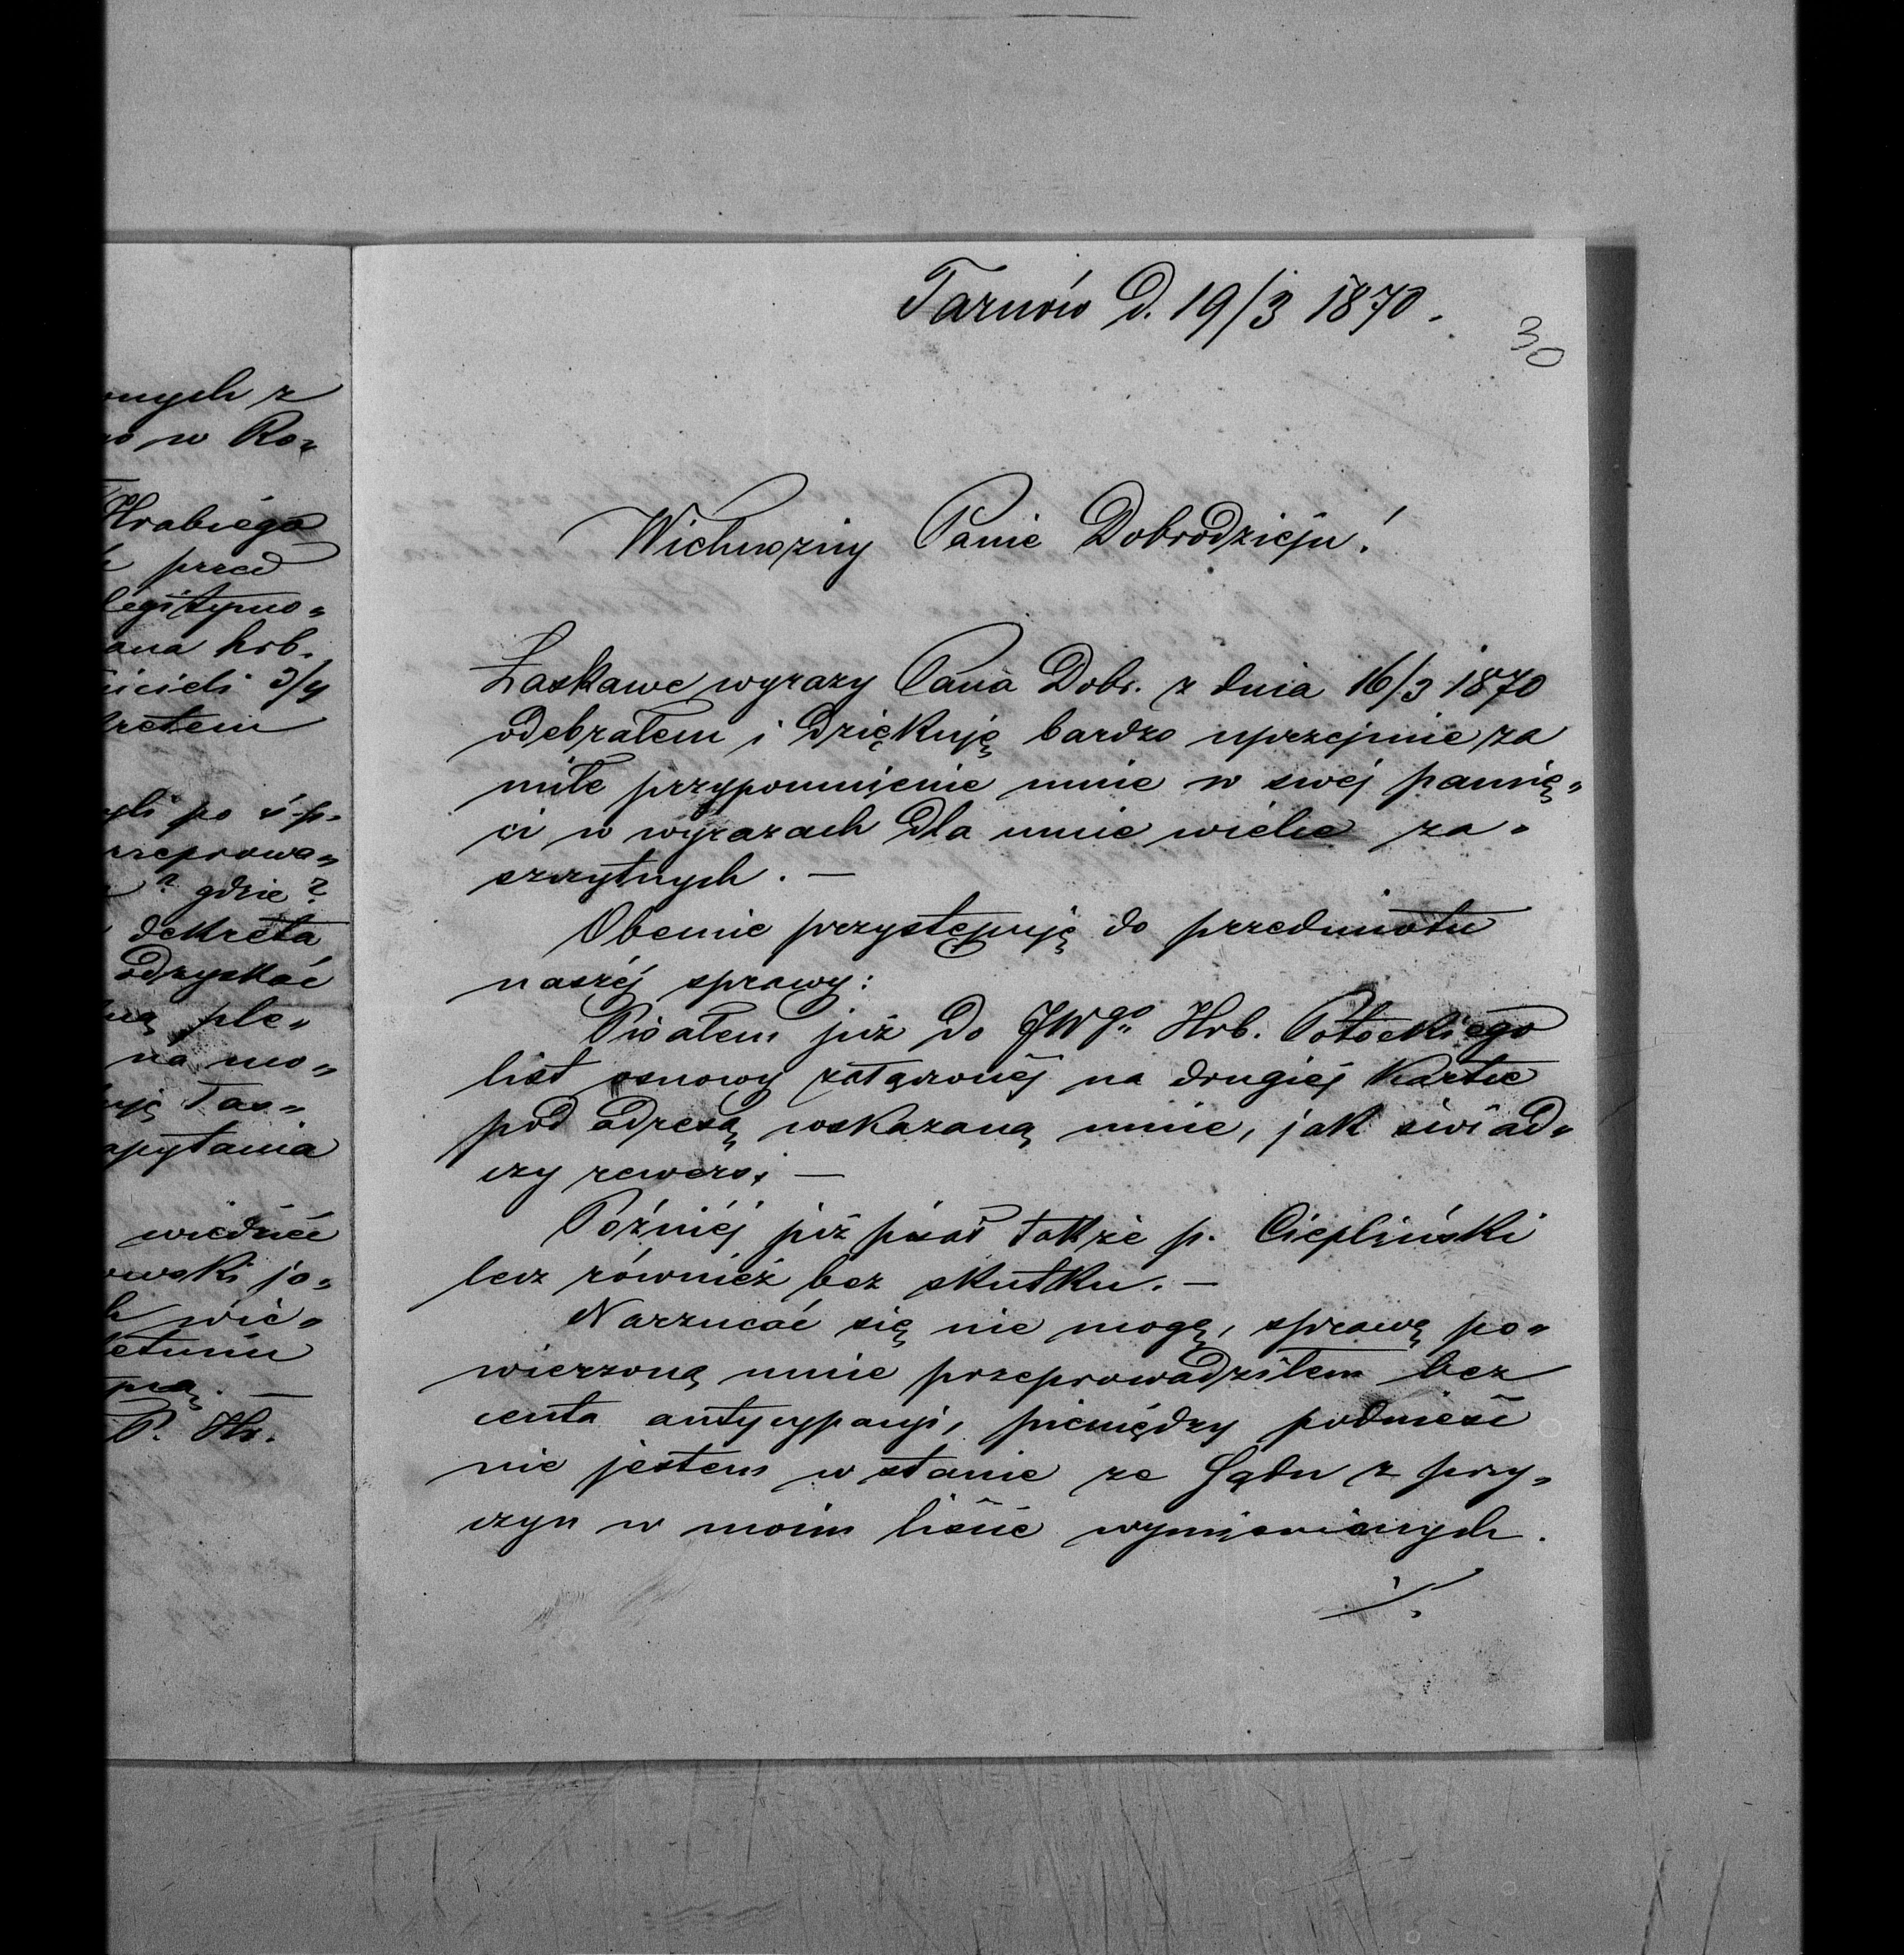 Tarnów d. 19/3 1870.
30
Wielmożny Panie Dobrodzieju!
Łaskawe wyrazy Pana Dobr. z dnia 16/3 1870
odebrałem i dziękuję bardzo uprzejmie za
miłe przypomnienie mnie w swéj pamię„
ci w wyrazach dla mnie wielce za„
szczytnych. —
Obecnie przystępuję do przedmiotu
naszéj sprawy:
Pisałem już do JWgo Hrb. Potockiego
list osnowy załączonéj na drugiéj kartce
pod adresą wskazaną mnie, jak świad„
czy rewers; —
Poźniéj już pisał także p. Ciepliński
lecz również bez skutku. —
Narzucać się nie mogę, sprawę po„
wierzoną mnie przeprowadziłem bez
centa antycypacyi, pieniędzy podnieść
nie jestem w stanie ze Sądu z przy„
czyn w moim liście wymienionych.
./.
nych z
w Ro„
Hrabiego
przed
legitymo„
ana hrb.
icieli 3/4
kretem
yli po ś.p.
rzeprowa„
? gdzie?
dekreta
odzyskać
ną ple„
na mo„
uję Tar„
apytania
wiedzieć
owski ja„
wie„
letniu
P. Hr.